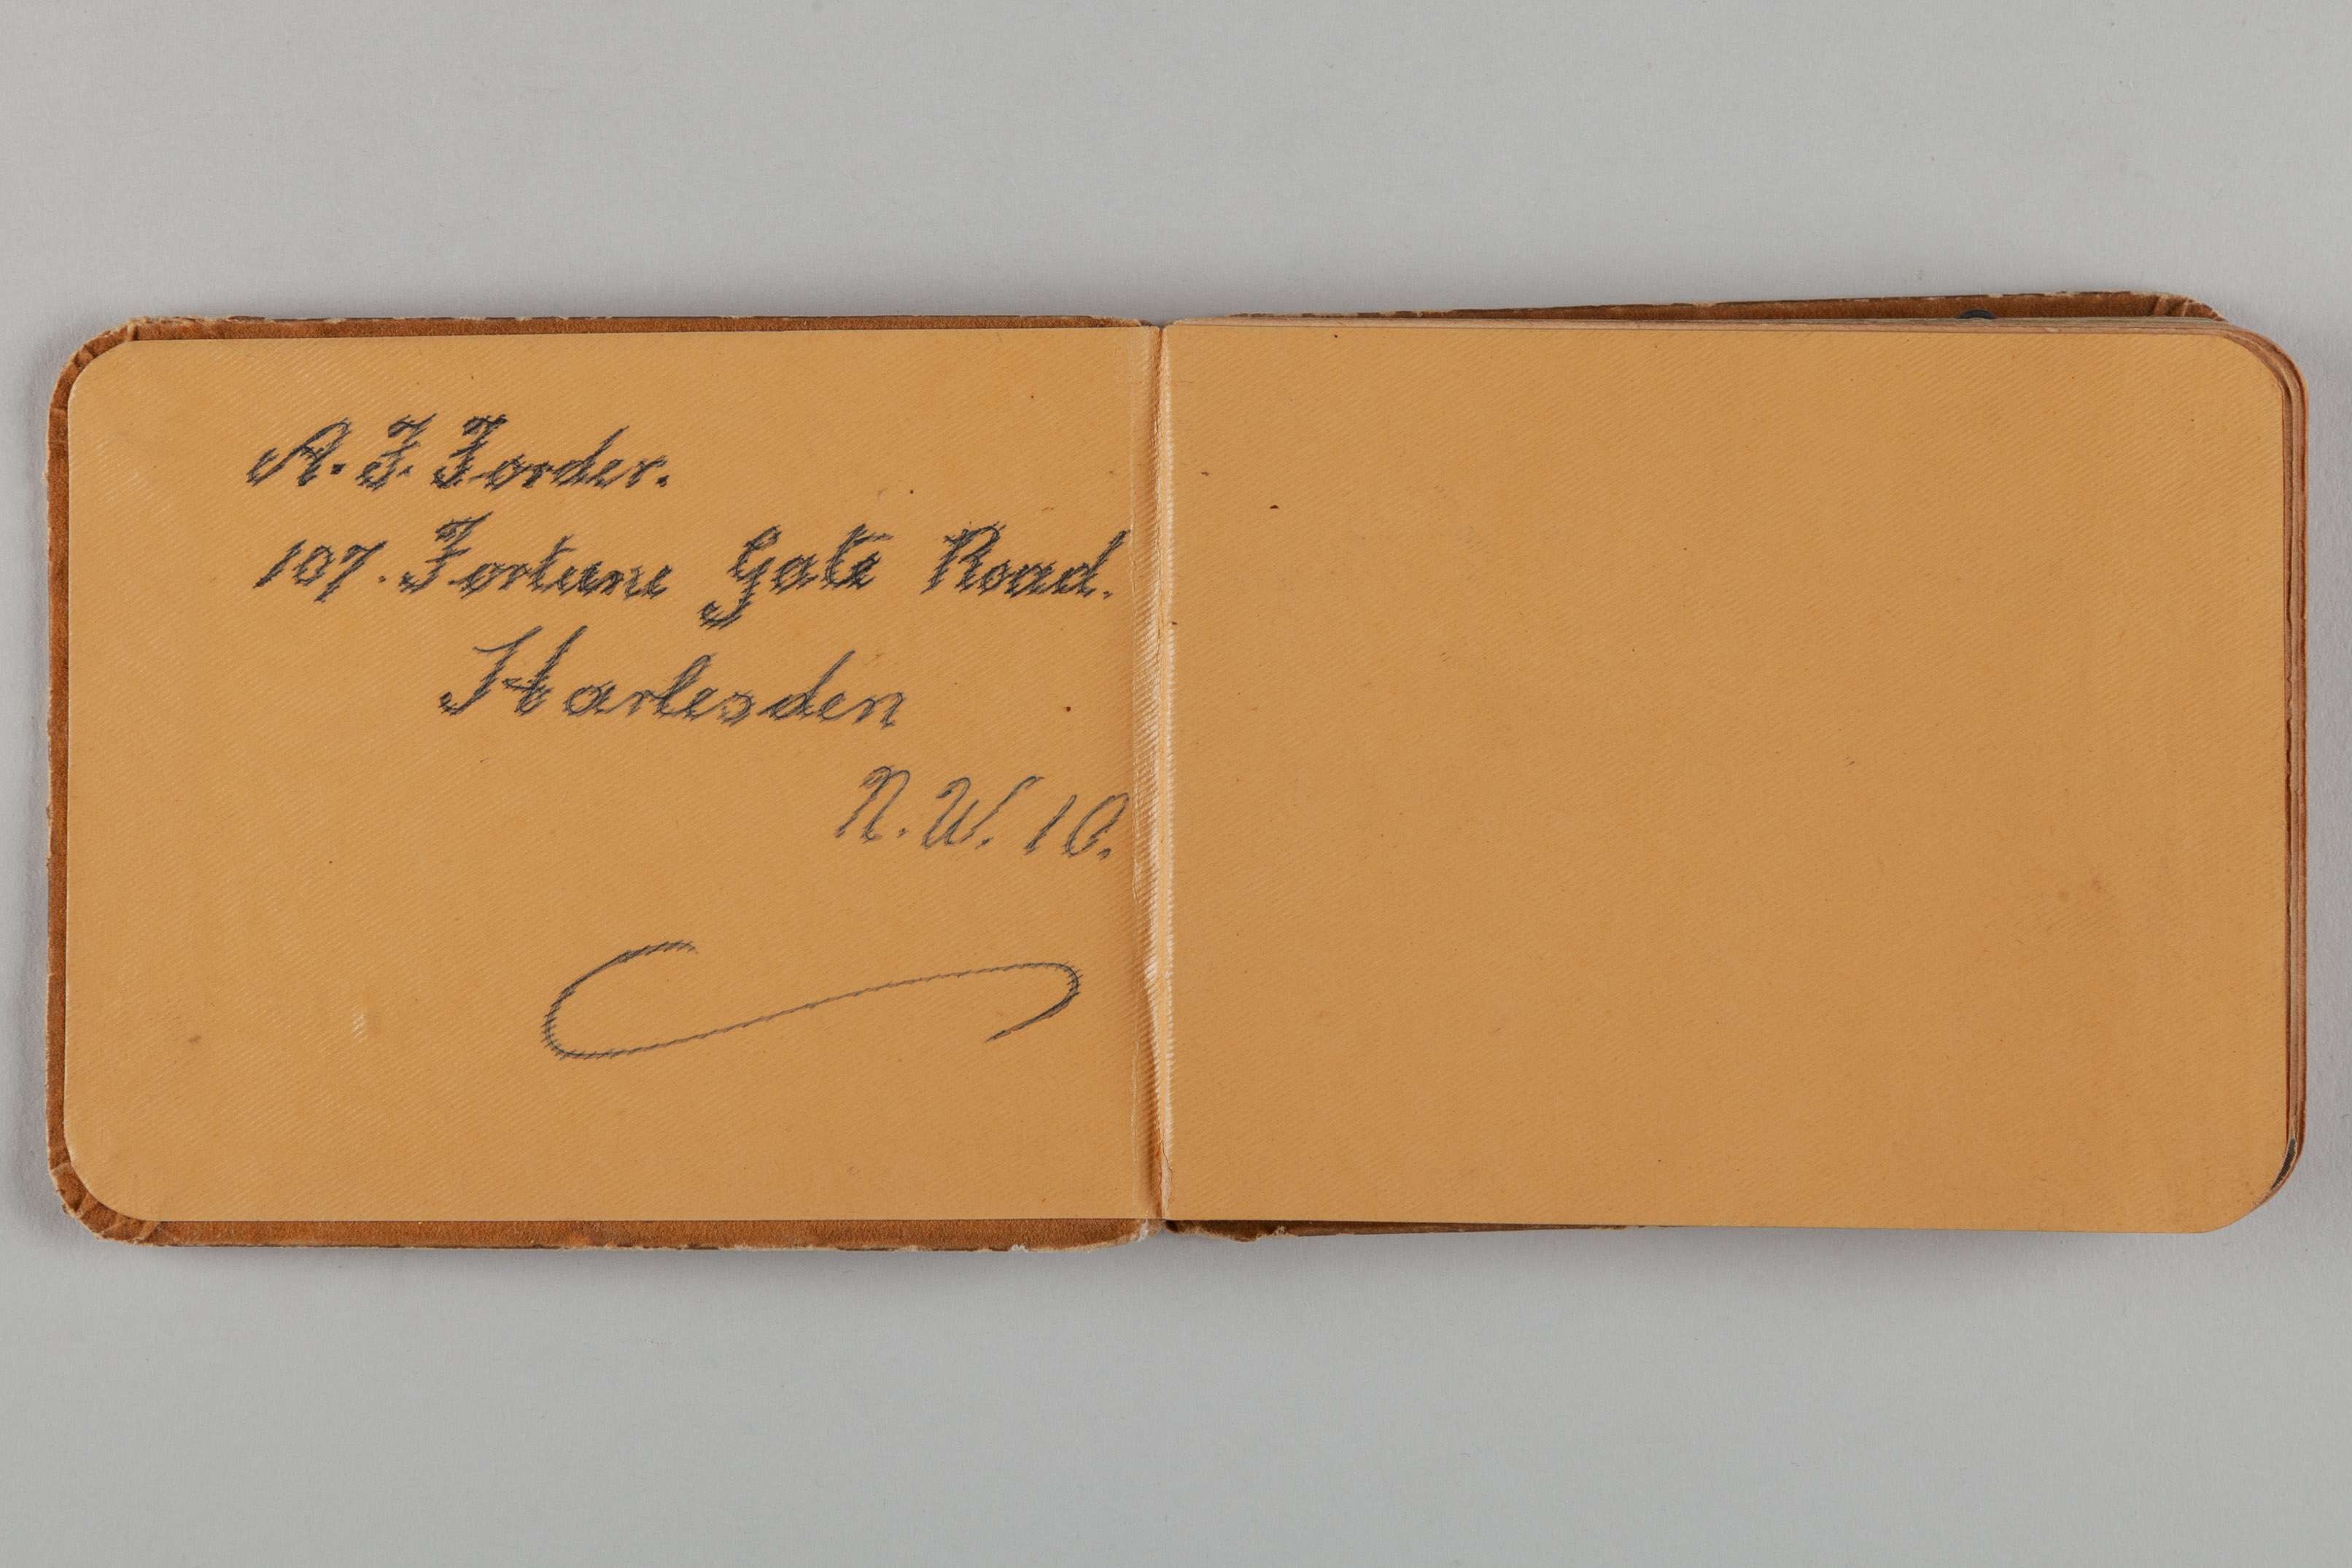 A. F. Forder.
107. Fortune Gate Road.
Harlesden
N.W. 10.